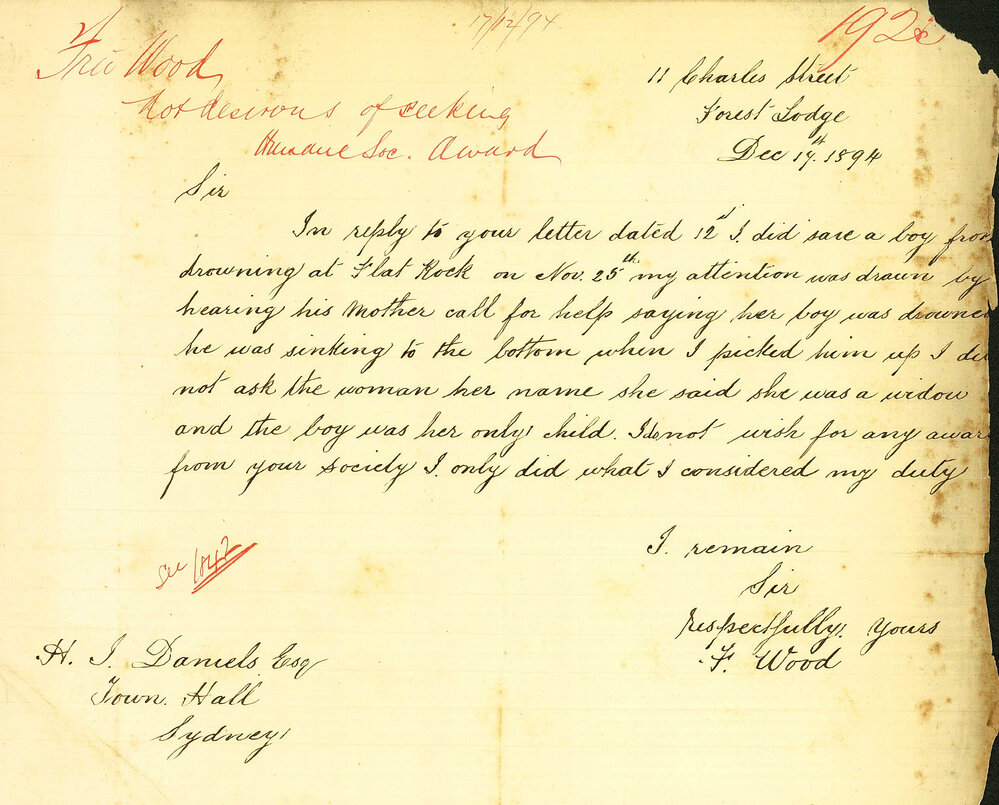 17/12/94
192
Fred Wood
Not desirous of seeking
Humane Soc. Award
11 Charles Street
Forest Lodge
Dec 17th. 1894
Sir
In reply to your letter dated 12th I did save a boy from
drowning at Flat Rock on Nov. 25th my attention was drawn by
hearing his Mother call for help saying her boy was drowned
he was sinking to the bottom when I picked him up I did
not ask the woman her name she said she was a widow
and the boy was her only child. I do not wish for any awar
from your society I only did what I considered my duty
I remain
Sir
respectfully yours
F. Wood
See 1842
H. J. Daniels Esq
Town Hall
Sydney